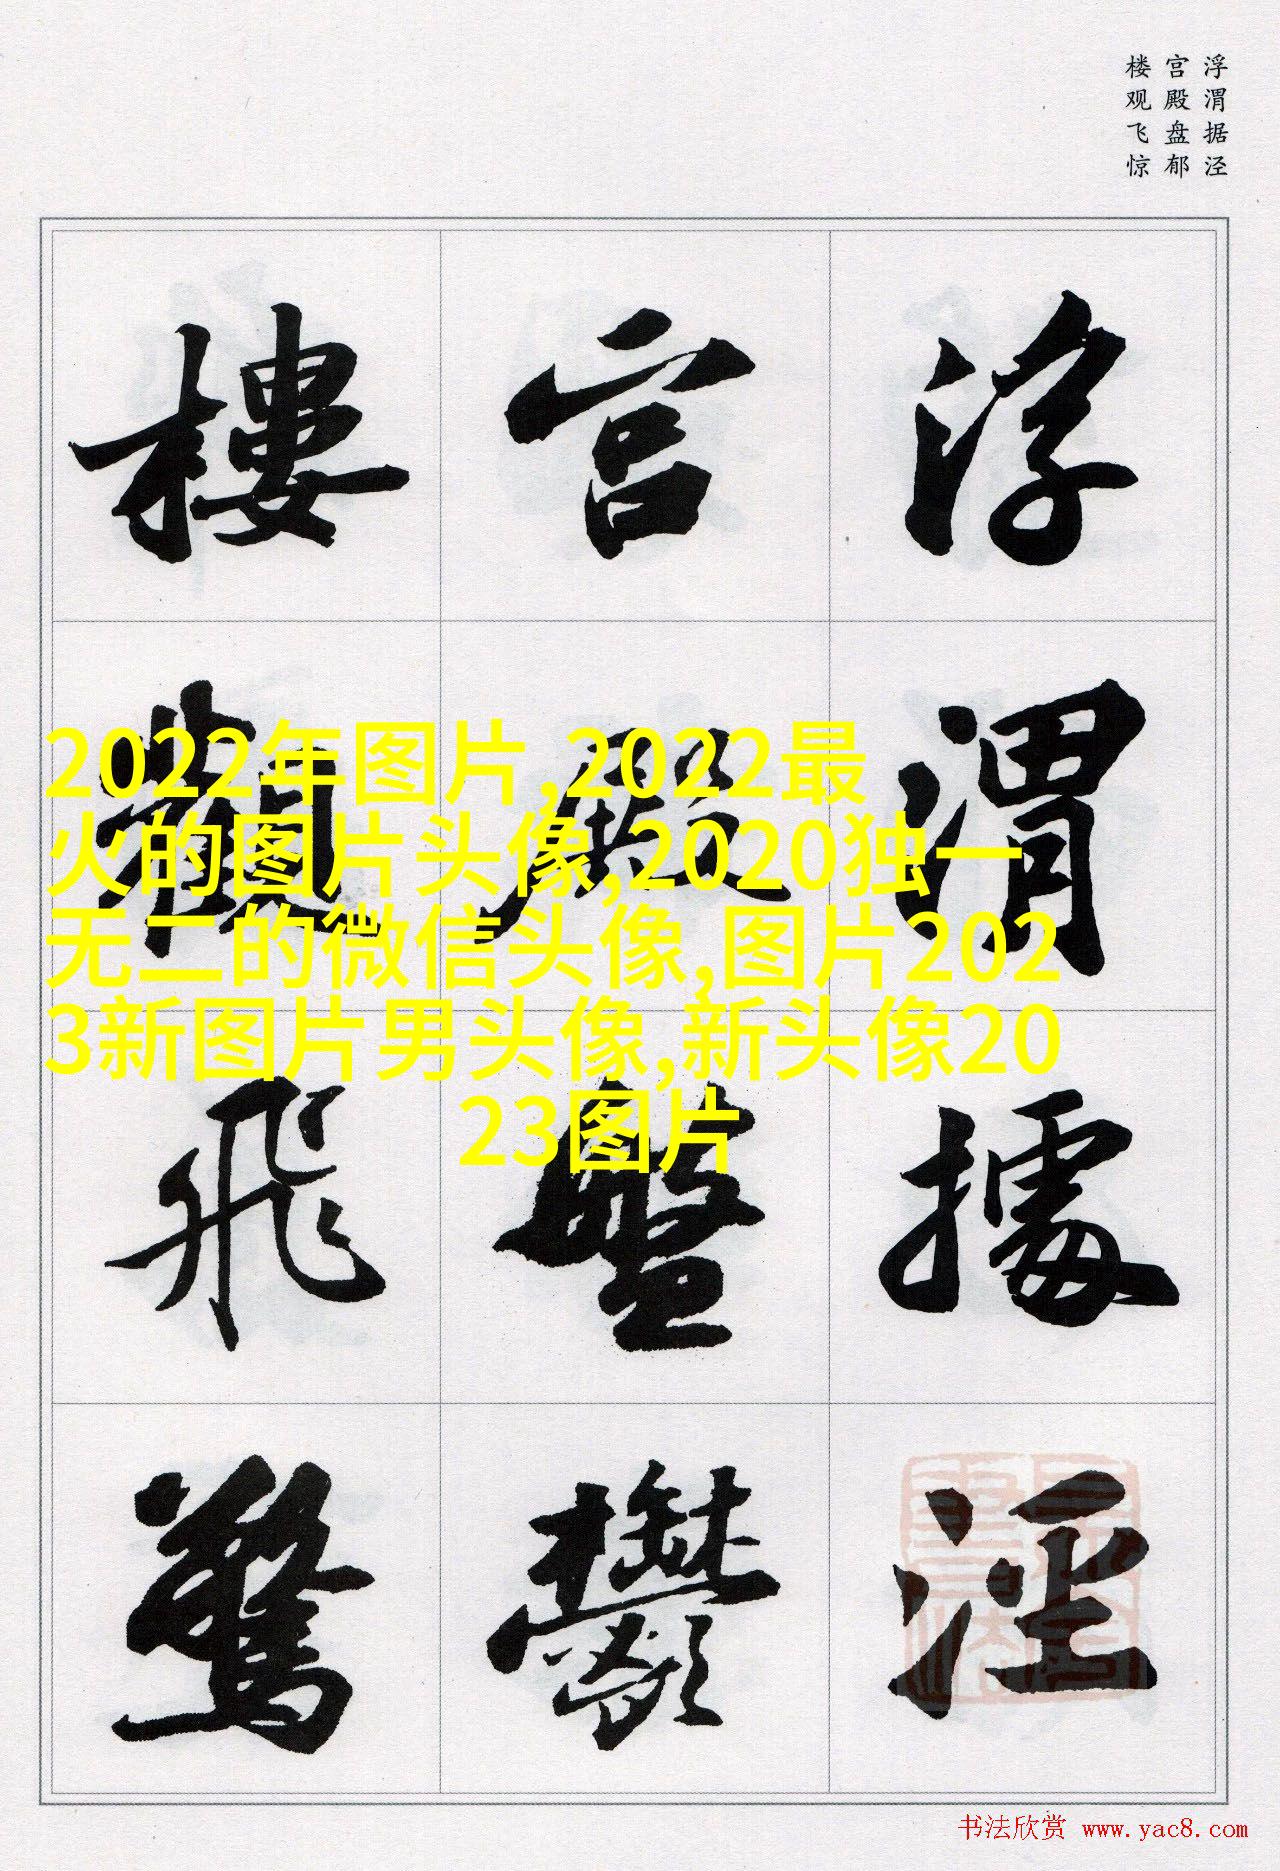 浮渭据泾
宫殿盘郁
楼观飞惊
浮渭據涇
宮殿盤鬱
樓觀飛驚
2022年图片,2022最
火的图片头像,2020独一
无二的微信头像,图片202
3新图片男头像,新头像20
23图片
书法欣赏 www.yac8.com